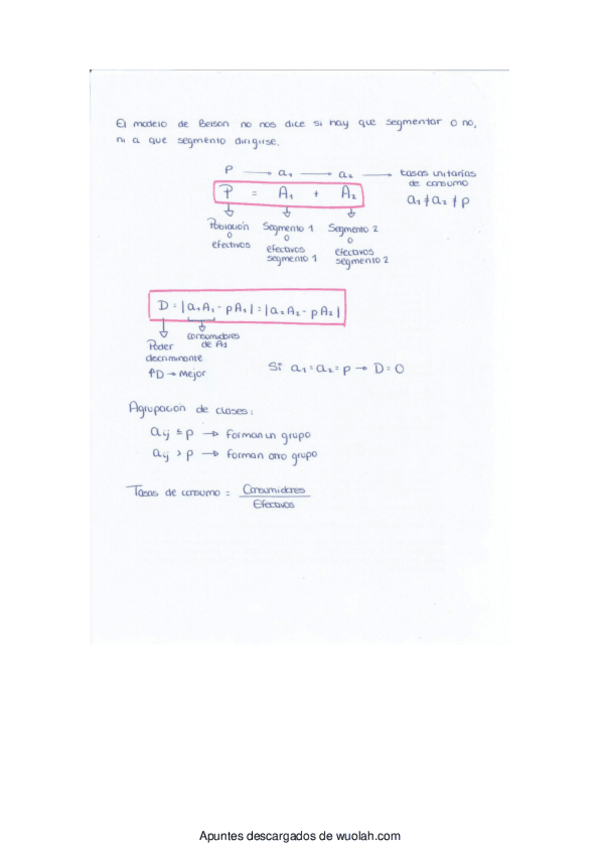 El modelo de Belson no nos dice si hay que segmentar o no,
ni a que segmento dirigirse.
p → a₁ → a₂ → tasas unitarias
de consumo
P = A₁ + A₂
a₁ ≠ a₂ ≠ p
Población Segmento 1 Segmento 2
o o o
efectivos efectivos efectivos
segmento 1 segmento 2
D = |a₁A₁ - pA₁| = |a₂A₂ - pA₂|
consumidores
de A₁
Poder
discriminante
↑D → Mejor
Si a₁ = a₂ = p → D = 0
Agrupación de clases:
aij ≤ p → Forman un grupo
aij > p → forman otro grupo
Tasas de consumo = Consumidores
Efectivos
Apuntes descargados de wuolah.com